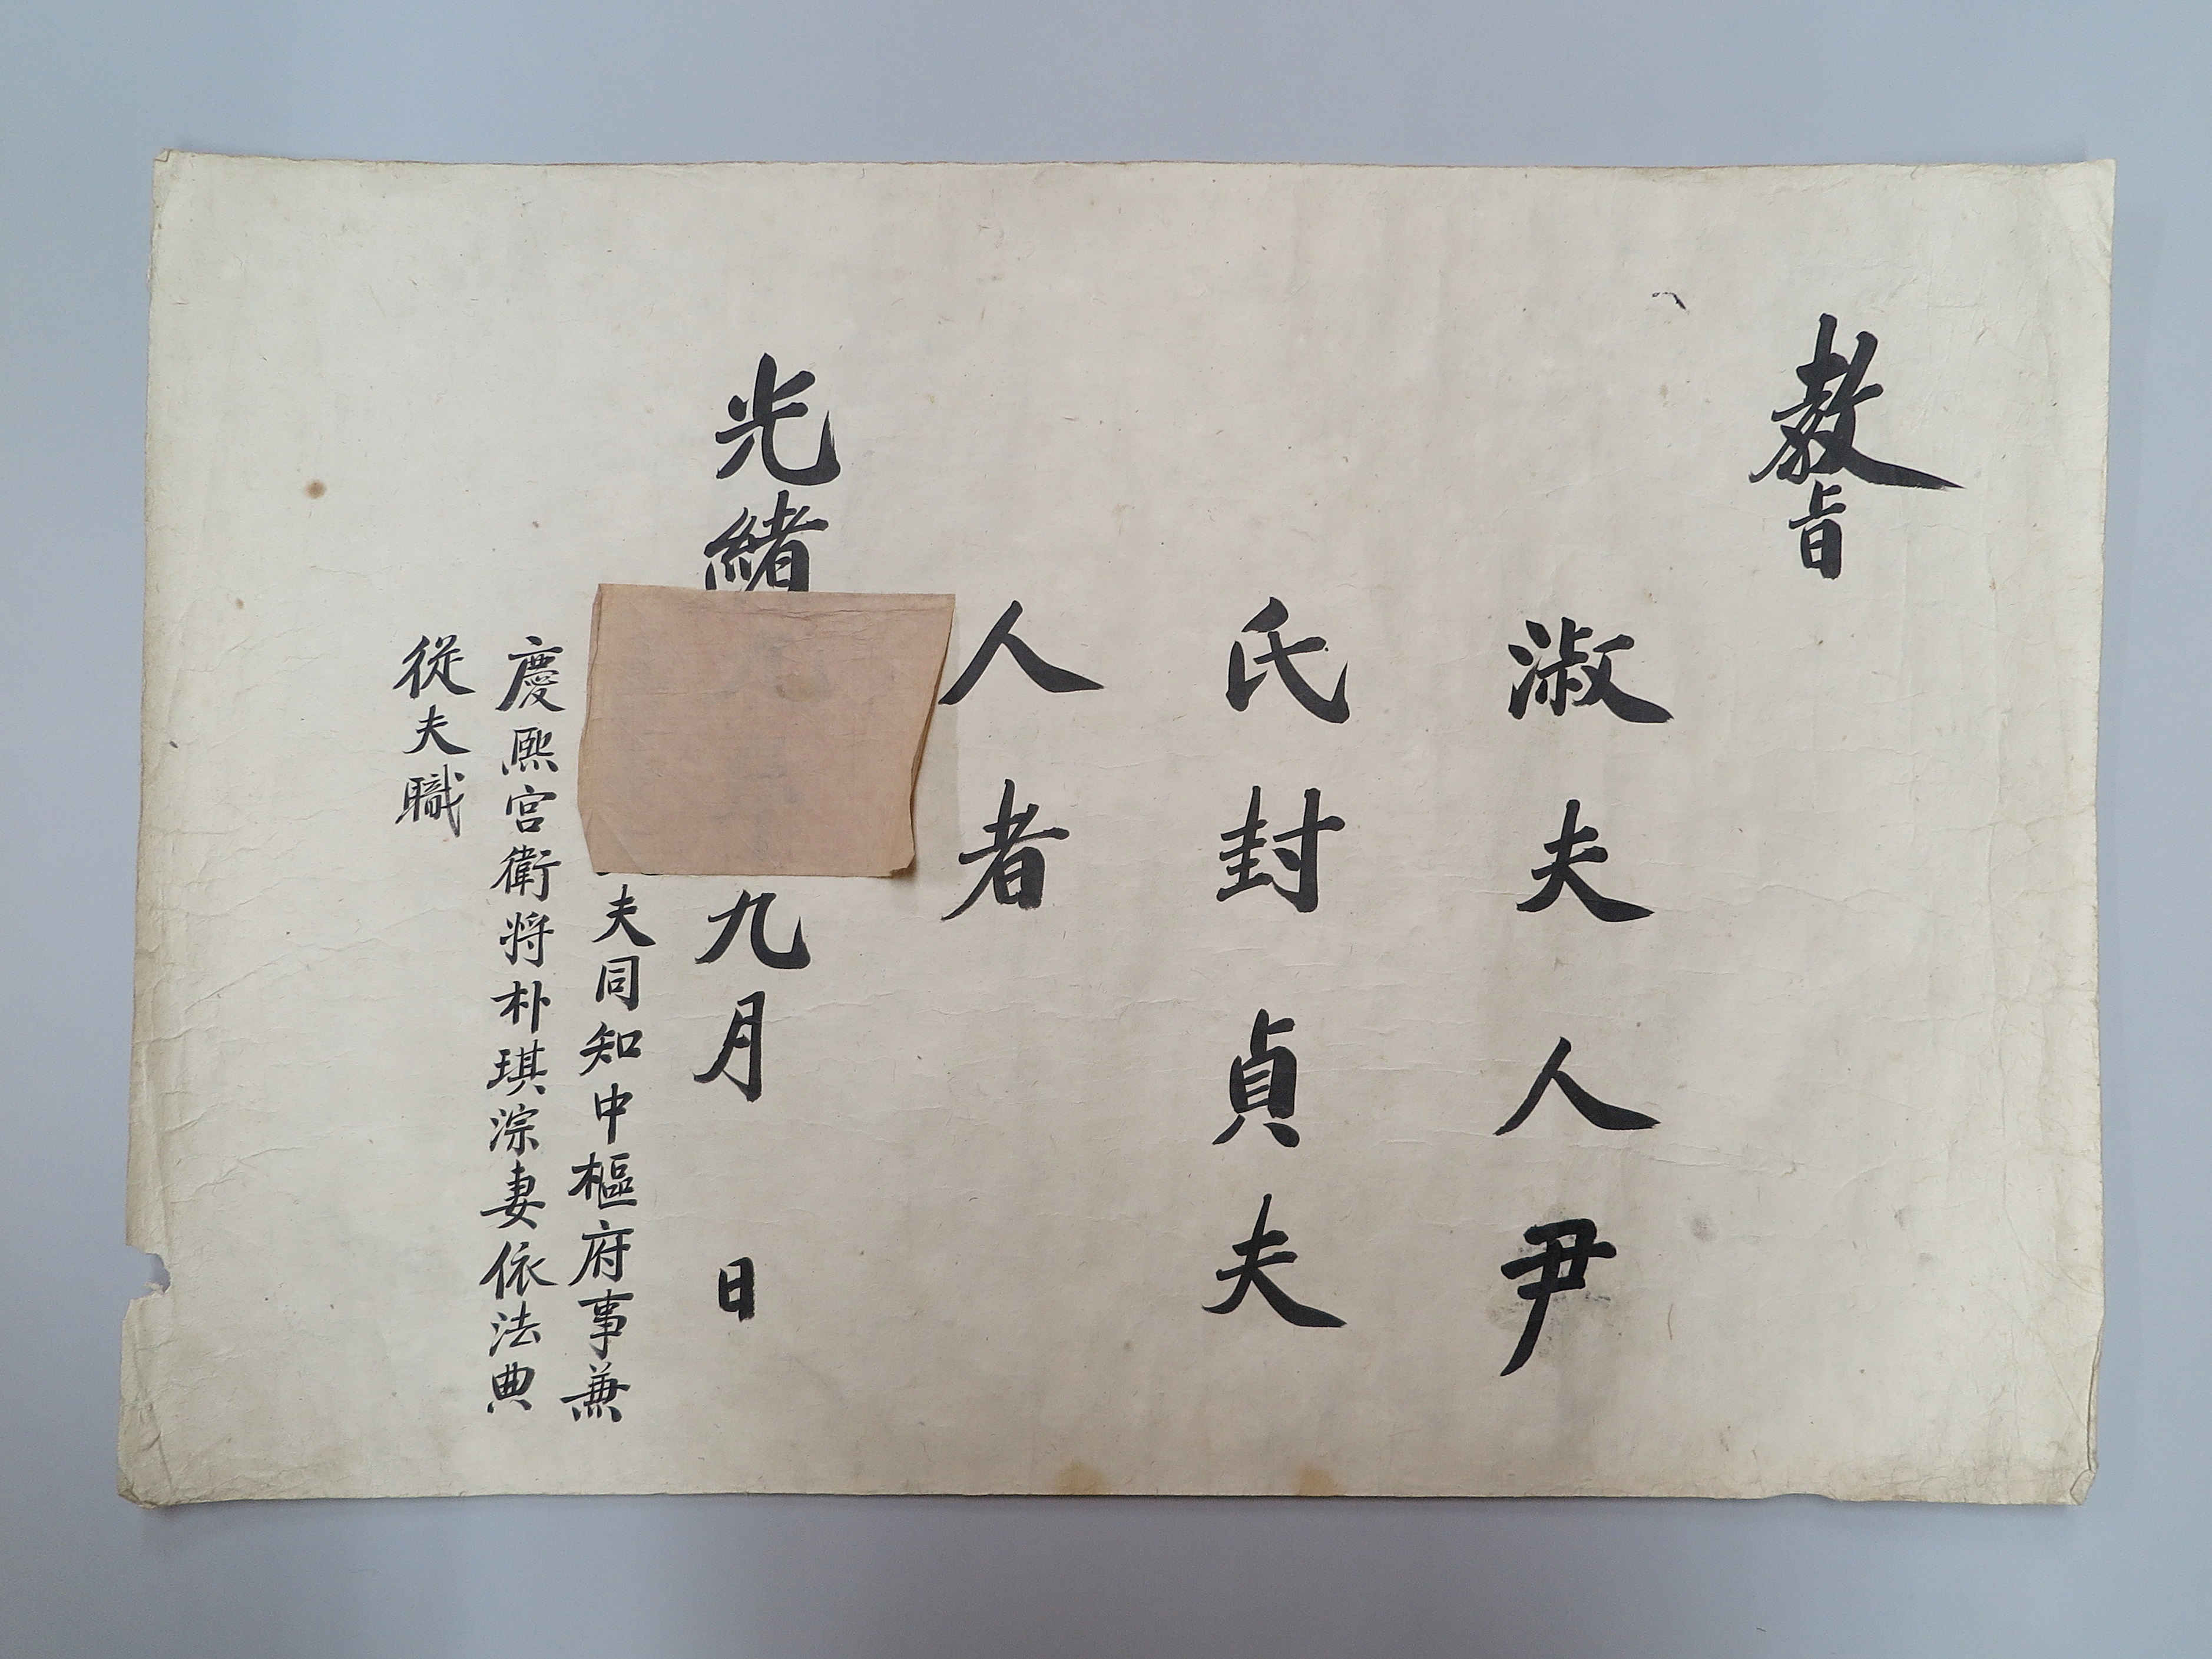 教旨
淑夫人尹
氏封貞夫
人者
光緒
九月 日
夫同知中樞府事兼
慶熙宮衛將朴琪淙妻依法典
從夫職